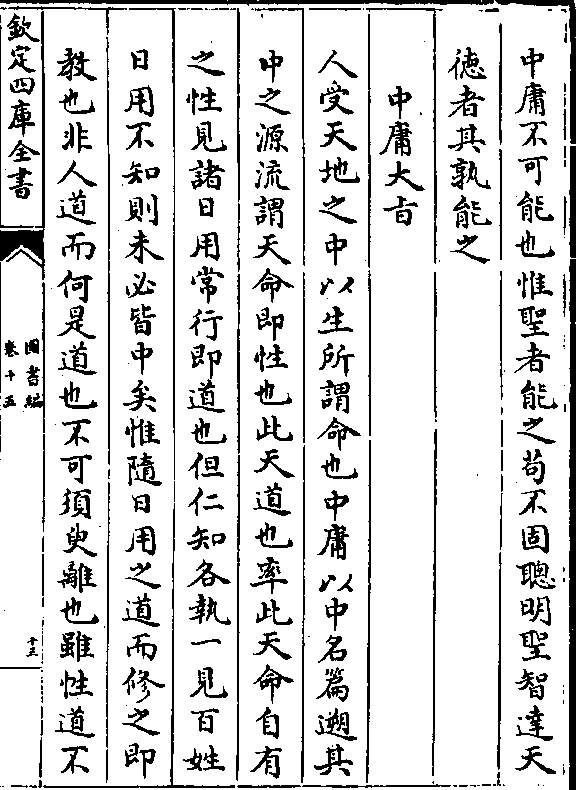 中庸不可能也惟聖者能之苟不固聰明聖智達天
徳者其孰能之
中庸大㫖
人受天地之中以生所謂命也中庸以中名篇遡其
中之源流謂天命即性也此天道也率此天命自有
之性見諸日用常行即道也但仁知各執一見百姓
日用不知則未必皆中矣惟隨日用之道而修之即
教也非人道而何是道也不可須臾離也雖性道不
欽定四庫全書
圖書編
卷十五
十三